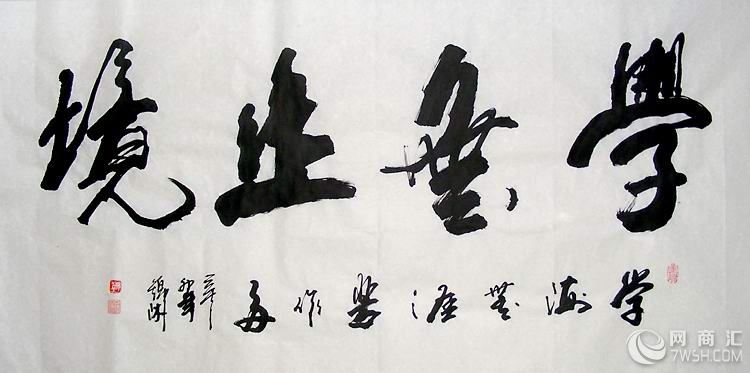 學無止境
学海無涯勤作舟
网商汇
7WSH.COM